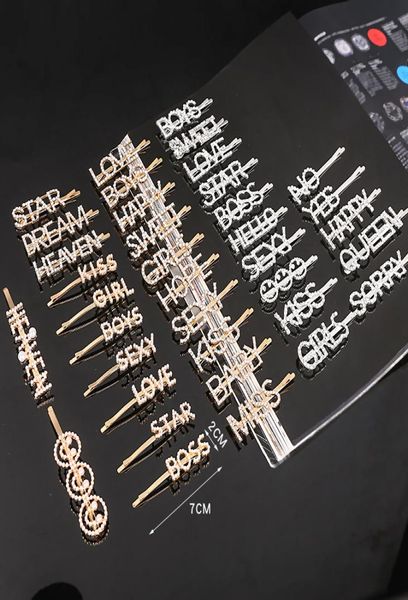 STAR
DREAM
HEAVEN
KISS
GIRL
BOYS
SEXY
LOVE
STAR
BOSS
2CM
7CM
LOVE
BOYS
HAPPY
SWEET
GIRLS
SEXY
KISS
BABY
MISS
BOYS
SWEET
LOVE
STAR
BOSS
HELLO
SEXY
KISS
GIRLS
NO
YES
HAPPY
QUEEN
SORRY